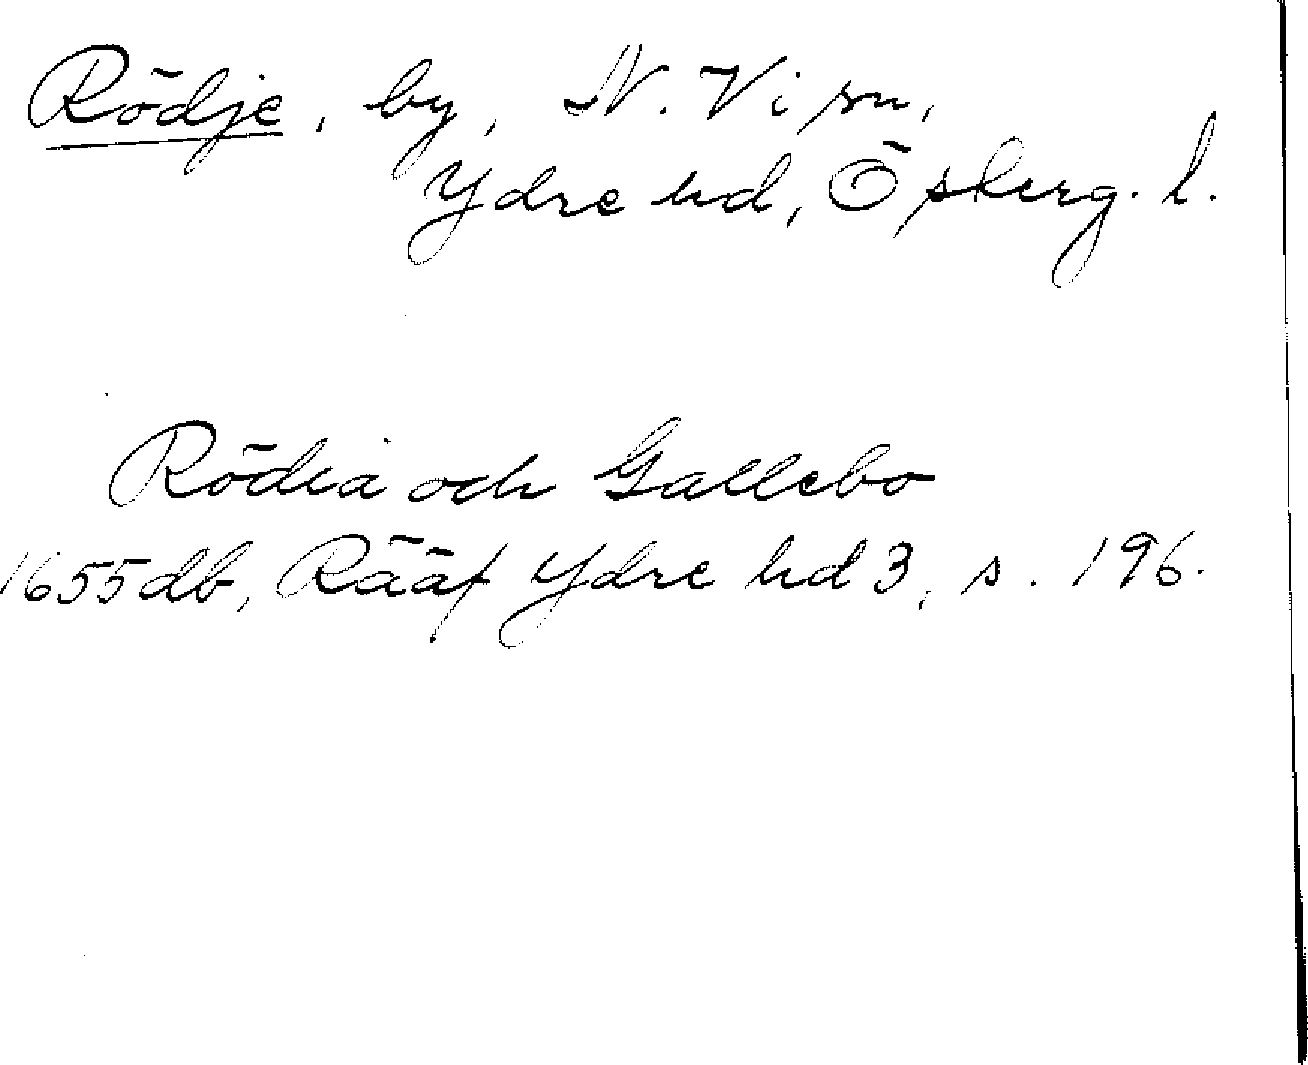 Rödje, by, N. Vi sn,
Ydre hd, Österg. l.
Rödia och Gallebo
1655 db, Rääf Ydre hd 3, s. 196.